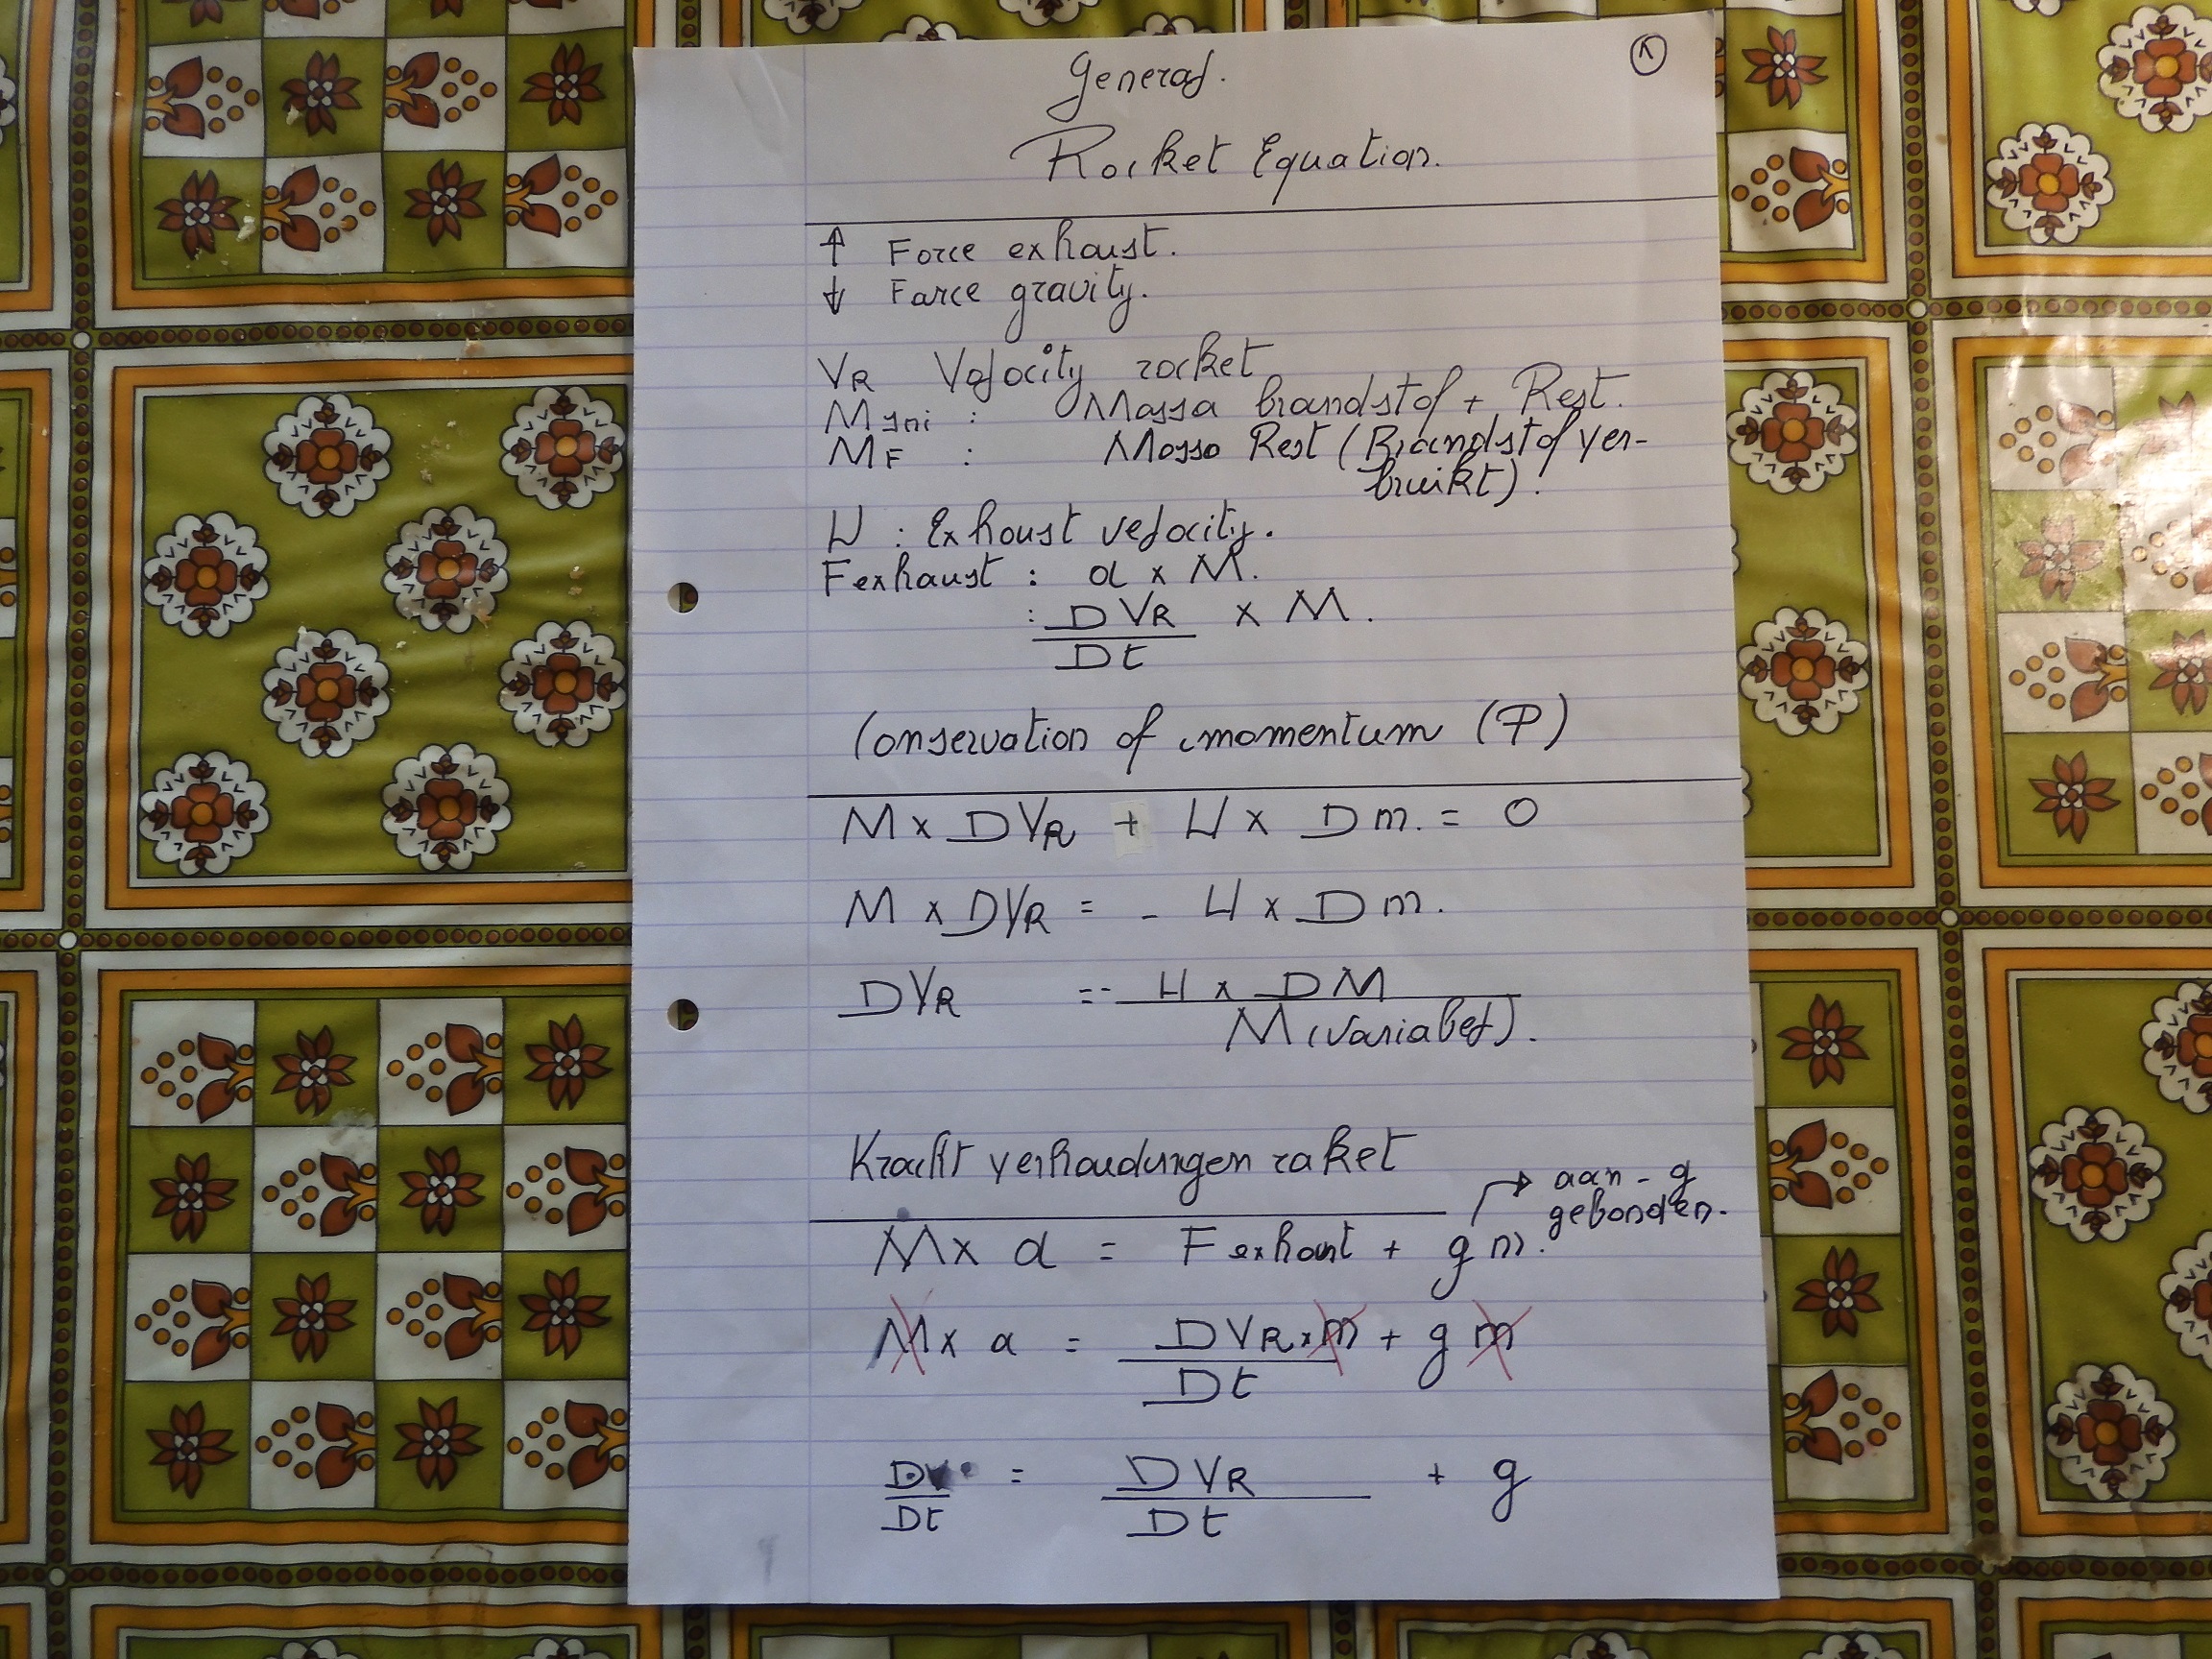 1
General.
Rocket Equation.
↑ Force exhaust.
↓ Force gravity.
VR Velocity rocket
M ini : Massa brandstof + Rest.
MF : Massa Rest (Brandstof ver-
bruikt).
U : Exhaust velocity.
Fexhaust : a x M.
: DVR x M.
Dt
Conservation of momentum (P)
M x DVR + U x Dm. = 0
M x DVR = - U x Dm.
DVR = - U x DM
M (variabel).
Kracht verhoudingen raket
aan - g
gebonden.
M x a = F exhaust + g m.
M x a = DVR x m + g m
Dt
DV = DVR + g
Dt Dt